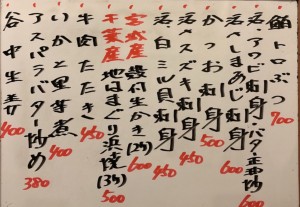 鮪トロぶつ 700
活・アワビ刺身・バター正油炒 600
活〆しまあじ刺身 600
かつお刺身 500
活〆スズキ刺身 450
活・白ミル貝刺身 450
宮城産 殻付生かき(2ヶ) 600
千葉産 地はまぐり浜焼(3ヶ) 500
牛肉たたき 450
いかと里芋煮 400
アスパラバター炒め 380
谷中生姜 400